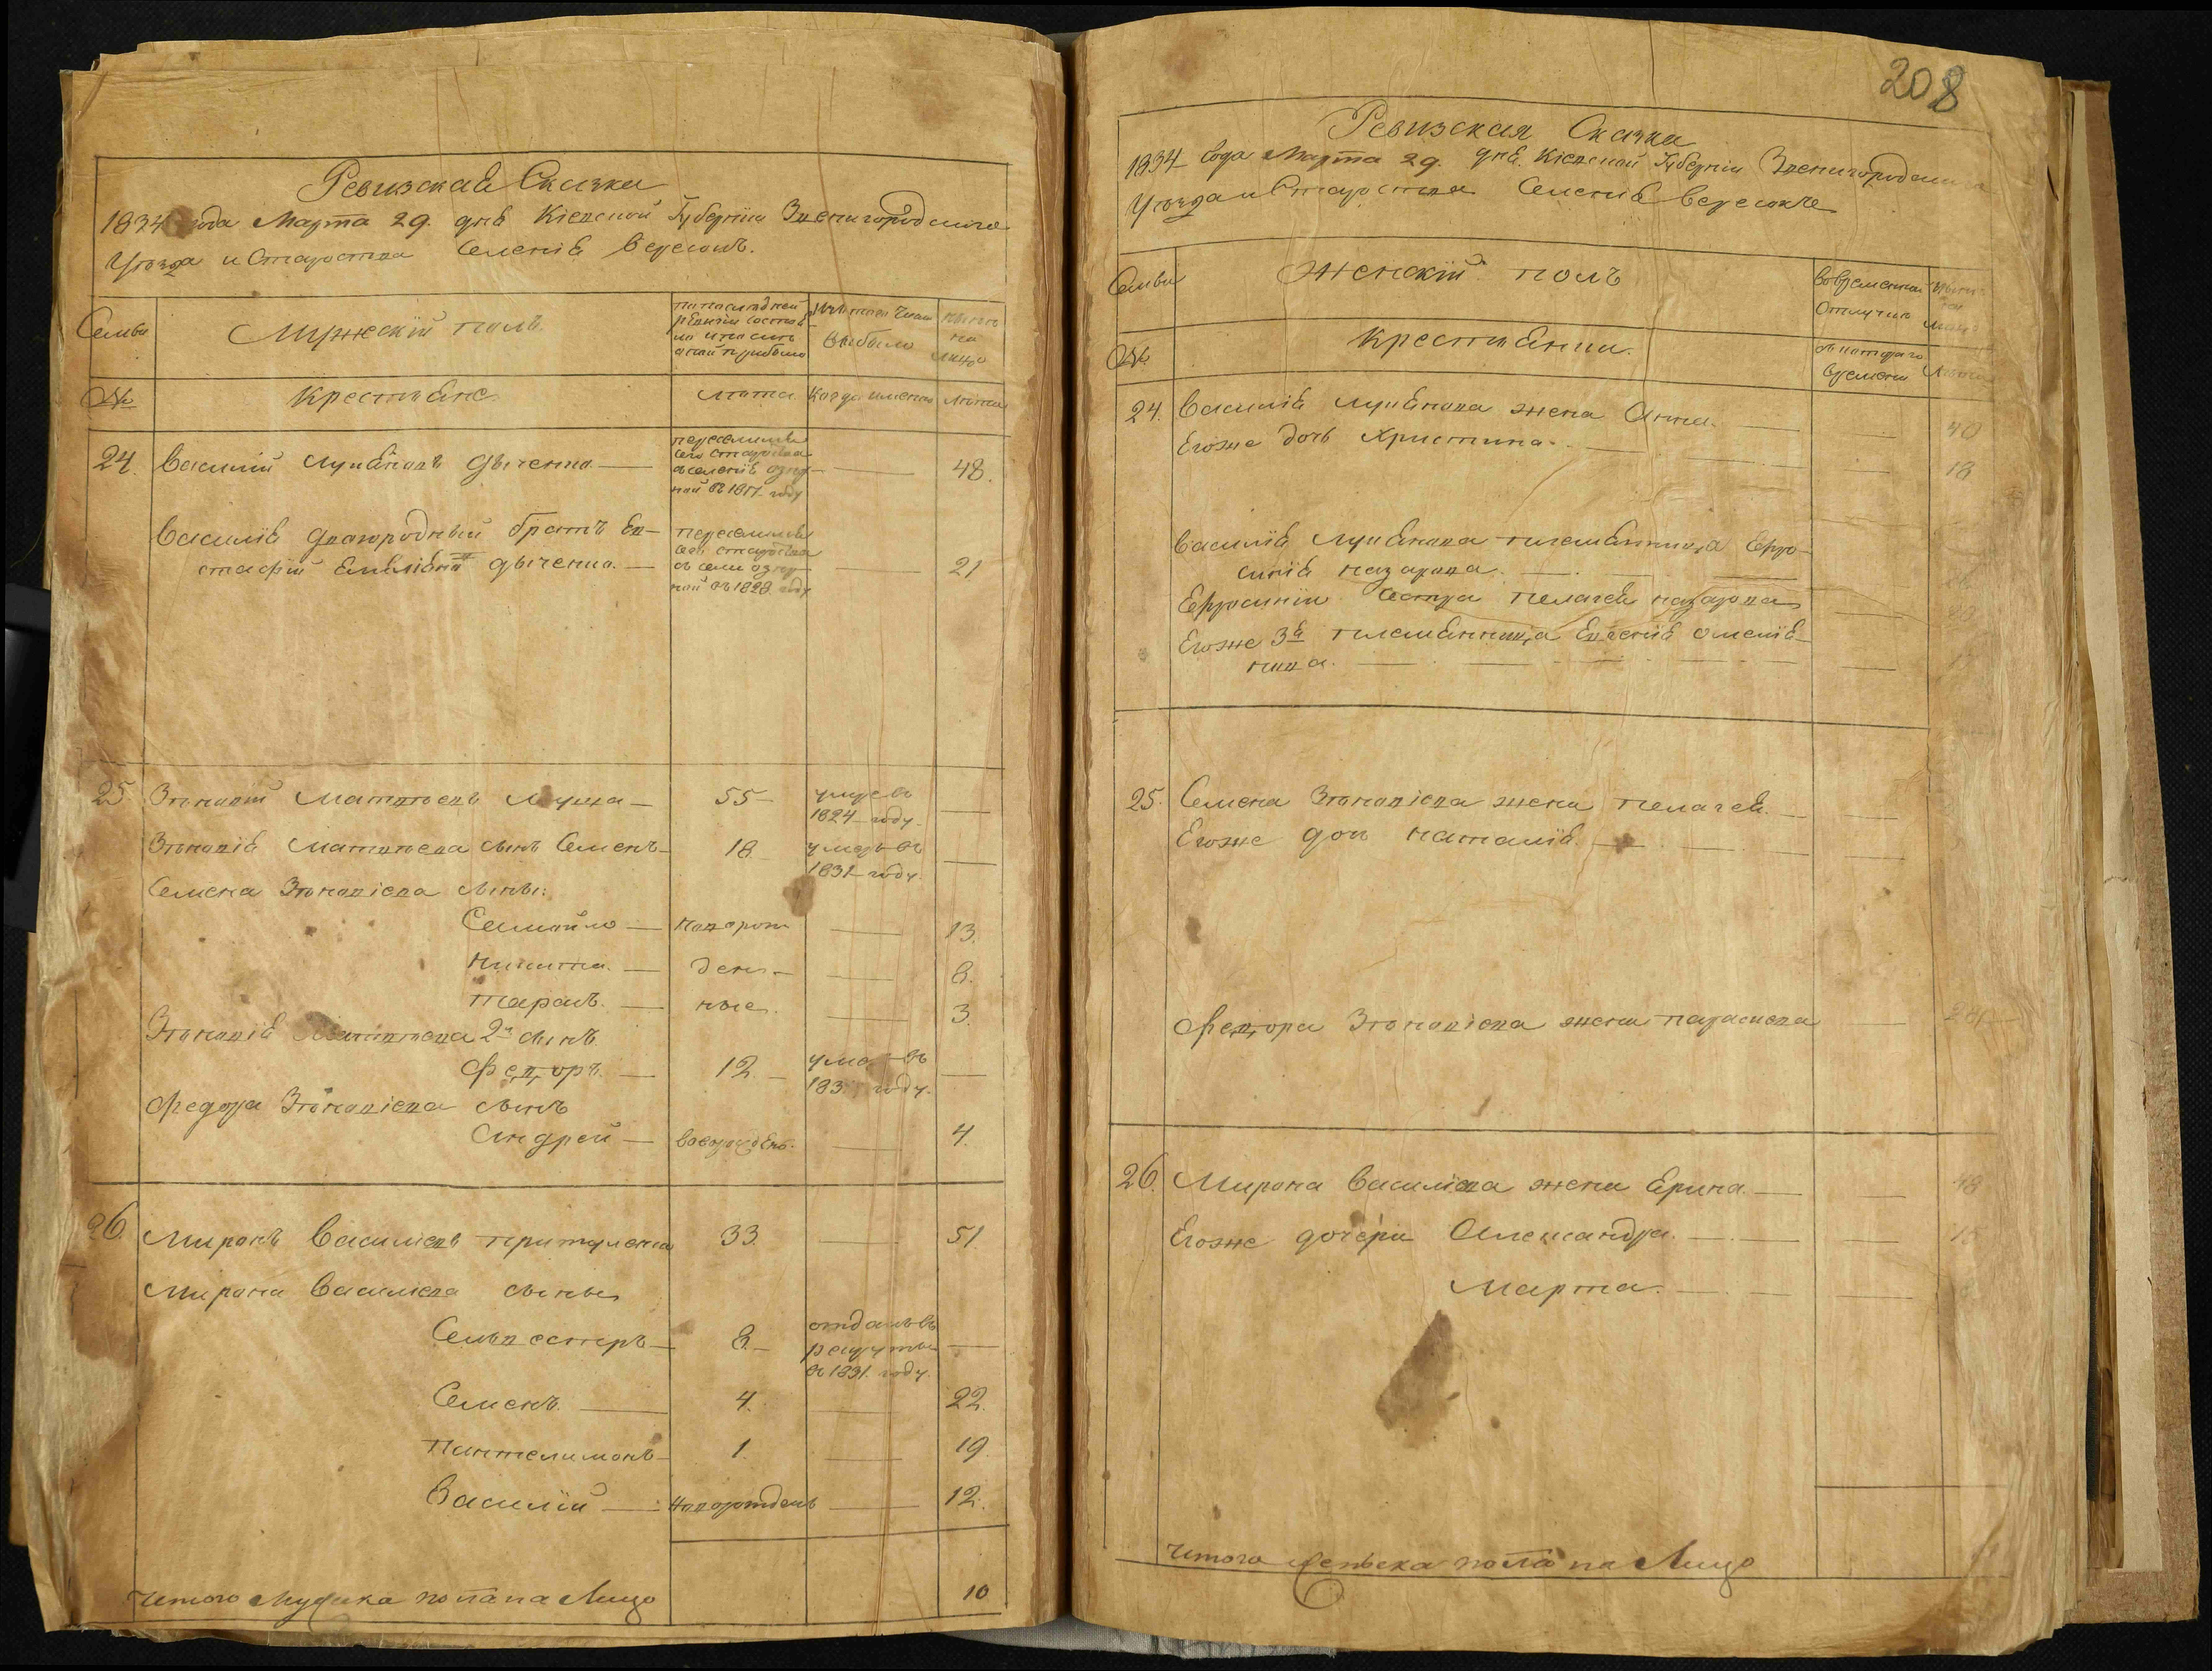 Ревизская Сказка
1834 года Марта 29. дня Кіевской Губерніи Звенигородскаго
Уѣзда и Староства Селенія Вересокъ.
Семьи
Мужескій полъ
по последней ревизіи состояло и после оной прибыло
Изъ того числа выбыло
нынѣ на лицо
№
Крестьяне
лѣта
Когда именно
лѣта
24. Василий Лукьяновъ Дяченко —
переселился
сего староства
съ селенія озир-
ной въ 1817 году
— 48.
Василія двоюродный братъ Ев-
стафій Емеліяновъ Дяченко. —
переселился
сего староства
съ сели озир-
ной въ 1828 году
— 21
25 Зѣновій Матвѣевъ — 55 — умре въ
1824 году. —
Зѣновія Матвѣева сынъ Семенъ — 18 умеръ въ
1831 году. —
Семена Зѣновіева сыны:
Самойло — новорож — 13.
Никита. — ден- — 8.
Тарасъ. — ные. — 3.
Зѣновія Матвѣева 2й сынъ
Федоръ. — 12. — въ
183 году. —
Федора Зѣновіева сынъ
Андрей — — 4.
26. Миронъ Василіевъ Притуленко 33. — 51.
Мирона Василіева сыны
Сельвестеръ — 8. — отданъ въ
рекруты
въ 1831. году. —
Семенъ. — 4. — 22.
Пантелимонъ — 1. — 19.
Василій — новорожденъ — 12.
Итого Мужеска пола на Лицо 10
208
Ревизская Сказка
1834 года Марта 29. дня. Кіевской Губерніи Звенигородскаго
Уѣзда и Староства Селенія Вересокъ
Семьи
Женскій полъ
Во временной
Отлучкѣ
№
Крестьянки.
съ котораго
времени
24. Василія Лукьянова жена Анна. — — 40
Егоже дочь Христина. — — 18
Василія Лукьянова племянница Ефро-
синія Назарова. —
Ефросиніи сестра Пелагея Назарова — 20
Егоже 3я племянница Евгенія Омелія-
нова. —
25. Семена Зѣновіева жена Пелагея. — —
Егоже дочь Наталія. — —
Федора Зѣновіева жена Параскева —
26. Мирона Василіева жена Ерина. — — 48
Егоже дочери Александра. — — 15
Марта. — —
Итого Женска пола на Лицо